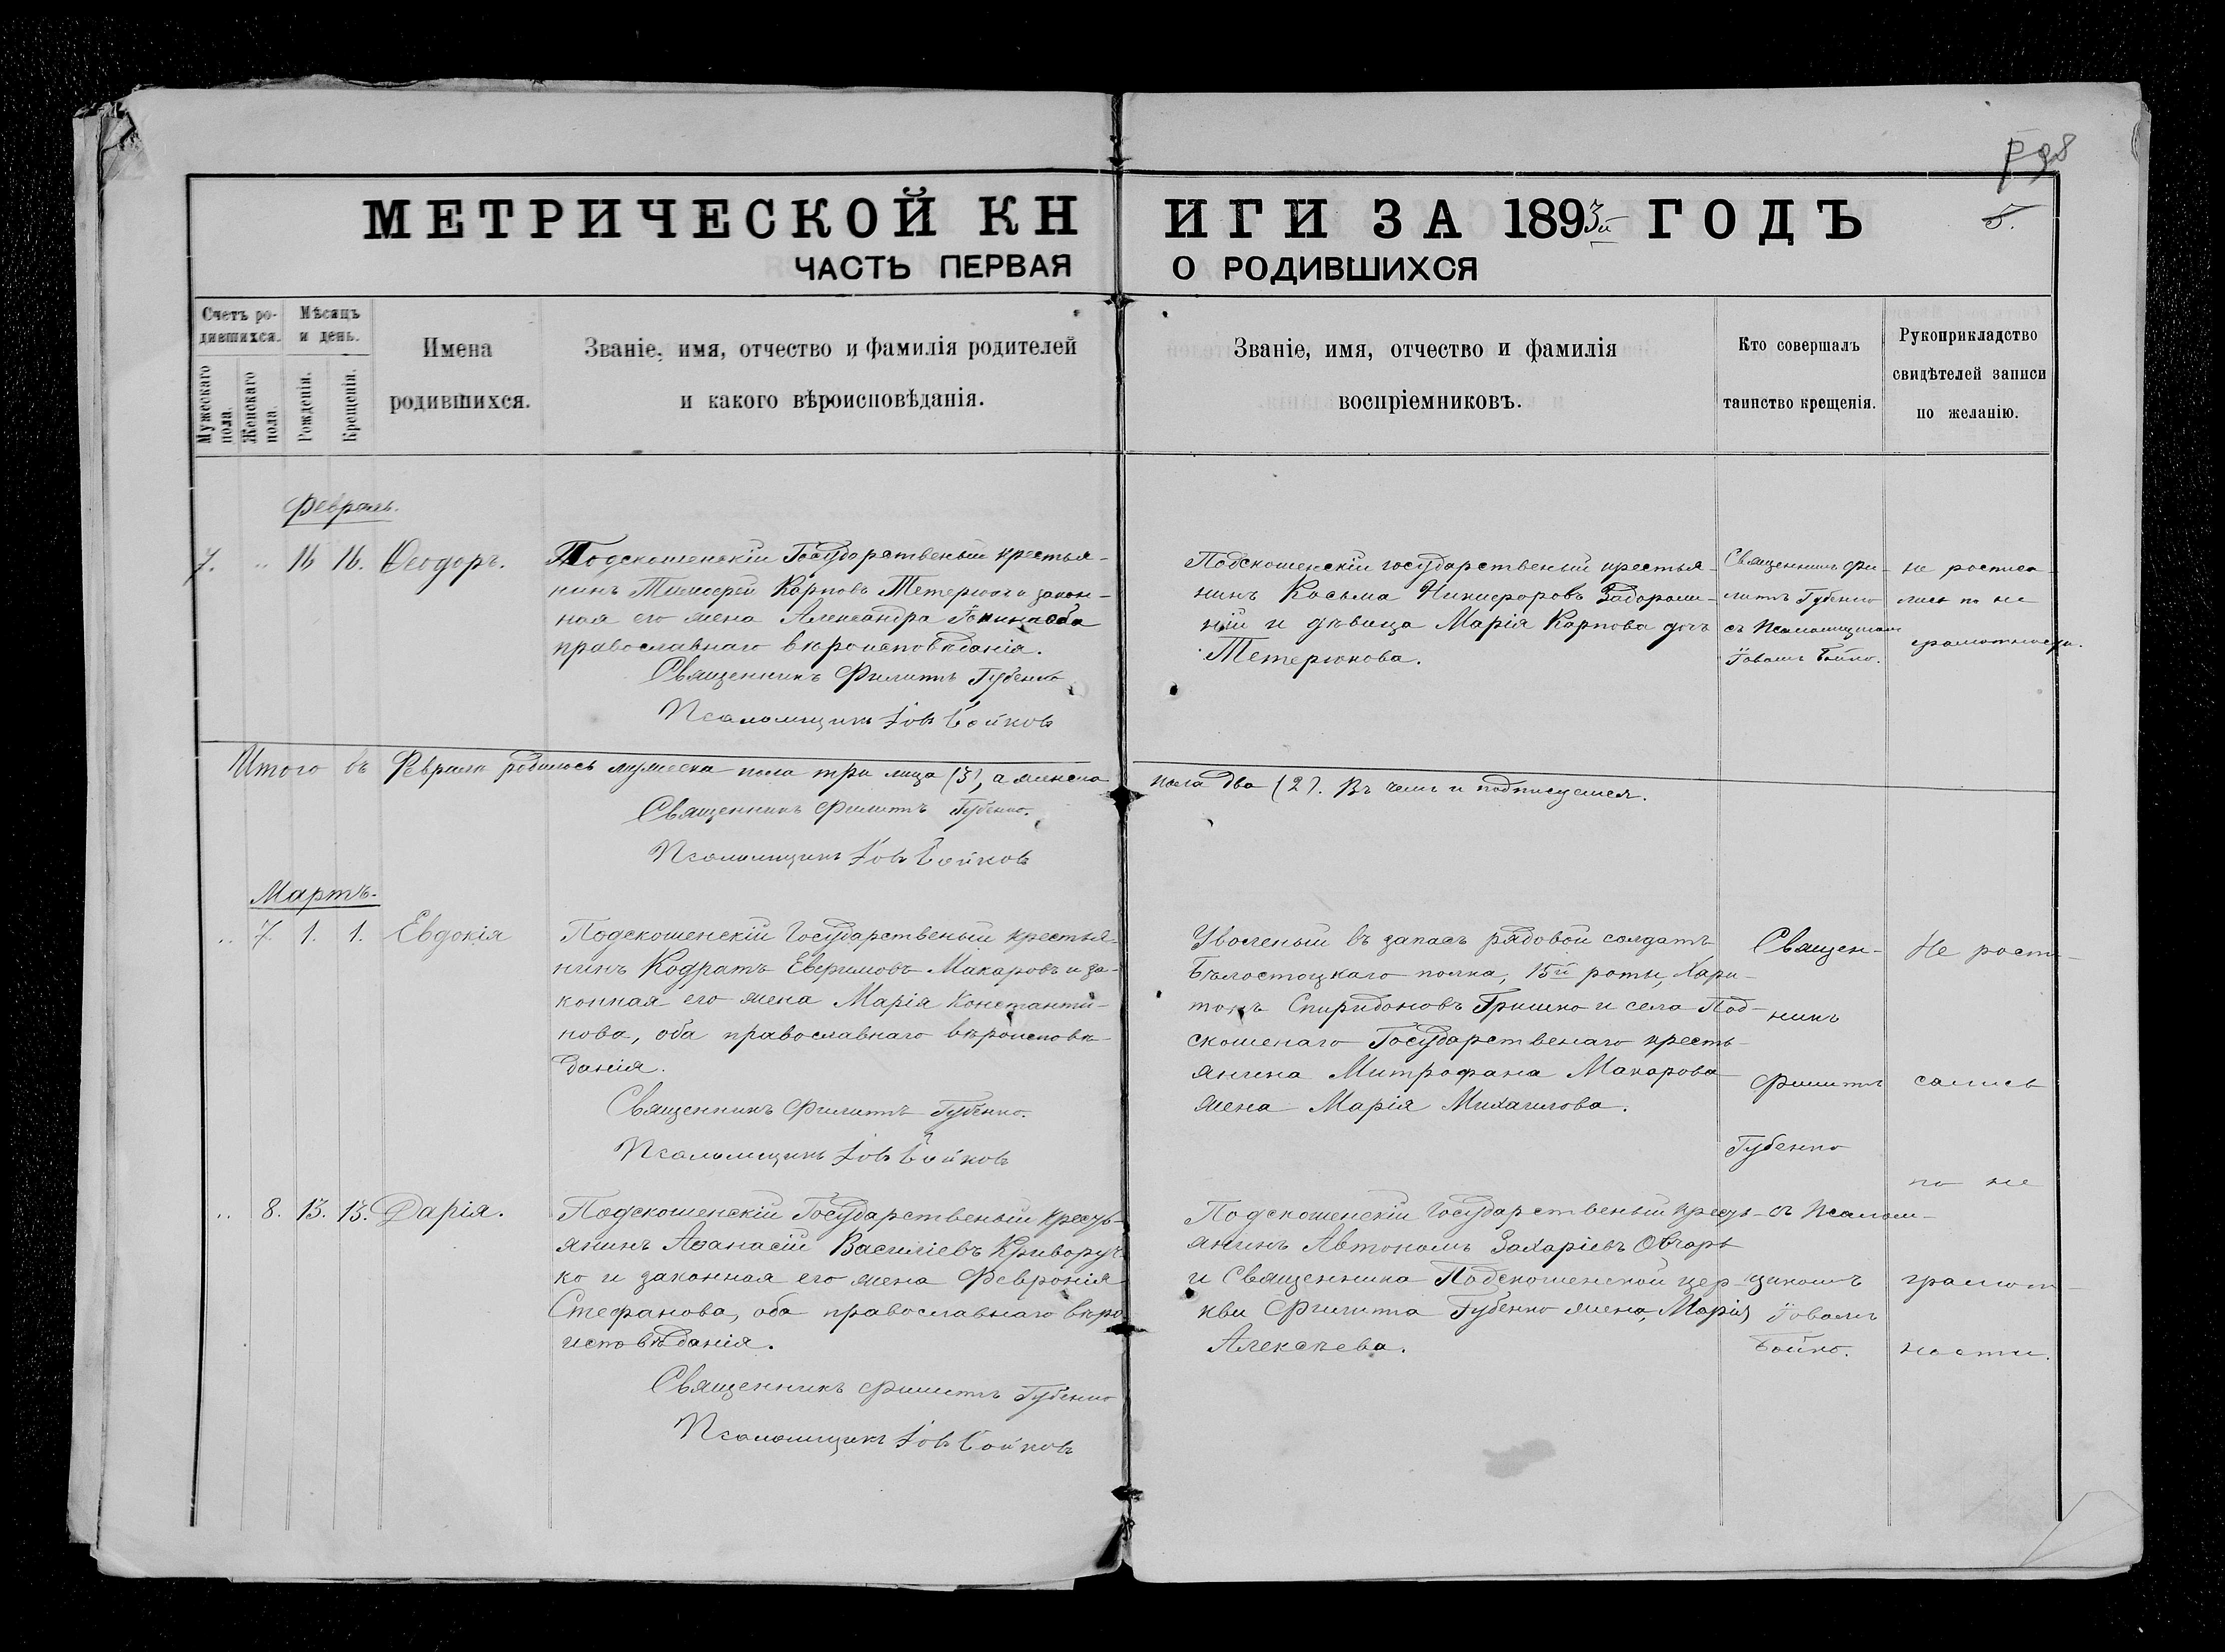 98
МЕТРИЧЕСКОЙ КНИГИ ЗА 1893й ГОДЪ
5.
ЧАСТЬ ПЕРВАЯ О РОДИВШИХСЯ
Счетъ родившихся.
Мужескаго пола.
Женскаго пола.
Мѣсяцъ и день.
Рожденія.
Крещенія.
Имена
родившихся.
Званіе, имя, отчество и фамилія родителей
и какого вѣроисповѣданія.
Званіе, имя, отчество и фамилія
воспріемниковъ.
Кто совершалъ
таинство крещенія.
Рукоприкладство
свидѣтелей записи
по желанію.
Февраль.
7. „ 16 16. Ѳеодоръ.
Подскошенскій Государственый крестья-
нинъ Тимофей Карповъ Тетерюк и закон-
ная его жена Александра оба
православнаго вѣроисповѣданія.
Священникъ Филиппъ Губенко
Псаломщикъ Іовъ Бойковъ
Подскошенскій государственый крестья-
нинъ Косьма Никифоровъ Задорож-
ній и дѣвица Марія Карпова дочь
Тетерюкова.
Священникъ Фи-
липпъ Губенко
съ Псаломщикомъ
Іовомъ Бойко.
не росписа-
лись по не
грамотности.
Итого въ Февралѣ родилось мужеска пола три лица (3), а женска пола два (2). Въ чемъ и подписуемся.
Священникъ Филиппъ Губенко.
Псаломщикъ Іовъ Бойковъ
Мартъ.
„ 7. 1. 1. Евдокія
Подскошенскій Государственый крестья-
нинъ Кодратъ Евфимовъ Макаровъ и за-
конная его жена Марія Константи-
нова, оба православнаго вѣроисповѣ-
данія.
Священникъ Филиппъ Губенко.
Псаломщикъ Іовъ Бойковъ
Уволеный въ запасъ рядовой солдатъ
Бѣлостоцкаго полка, 15й роты, Хари-
тонъ Спиридоновъ Гришко и села Под-
скошенаго Государственаго кресть-
янина Митрофана Макарова
жена Марія Михаилова.
Священ-
никъ
Филиппъ
Губенко
Не роспи-
сались
по не
„ 8. 13. 13. Дарія.
Подскошенскій Государственый Крестъ-
янинъ Аѳанасій Василіевъ Криворуч-
ко и законная его жена Февронія
Стефанова, оба православнаго вѣро
исповѣданія.
Священникъ Филиппъ Губенко
Псаломщикъ Іовъ Бойковъ
Подскошенскій Государственый крестъ-
янинъ Автономъ Захаріевъ Овчаръ
и Священника Подскошенской цер-
кви Филиппа Губенко жена, Марія
Алексѣева.
съ Псалом-
щикомъ
Іовомъ
Бойко.
грамот-
ности.